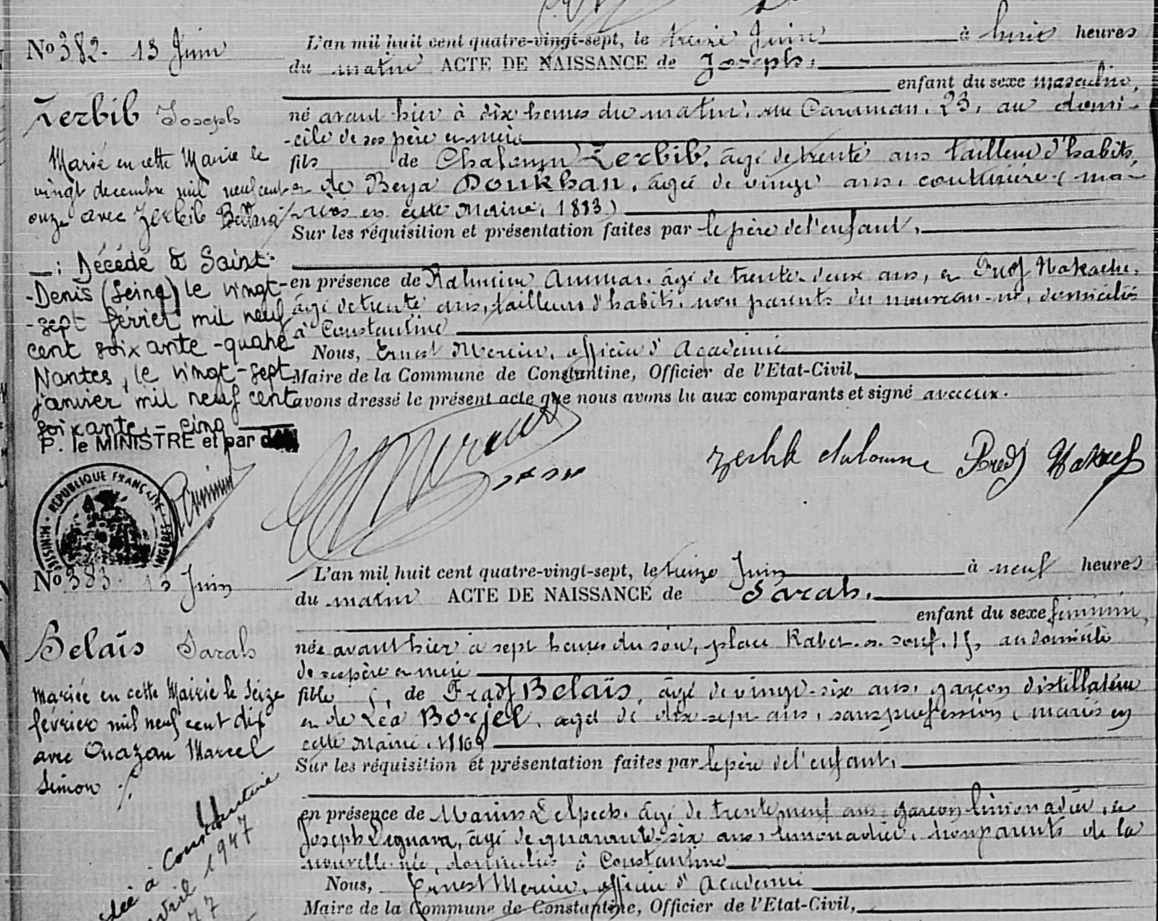 No 382. 13 Juin
L'an mil huit cent quatre-vingt-sept, le treize Juin à huit heures
du matin ACTE DE NAISSANCE de Joseph,
enfant du sexe masculin,
Zerbib Joseph
né avant hier à dix heures du matin, rue Caraman, 23, au domi-
-cile de ses père et mère
fils de Chaloum Zerbib, âgé de trente ans tailleur d'habits,
et de Beya Doukhan, âgée de vingt ans, couturière (ma-
-riés en cette Mairie, 1883)
Sur les réquisition et présentation faites par le père de l'enfant,
en présence de Rahmine Ammar, âgé de trente deux ans, et Fredj Nakache,
âgé de trente ans, tailleurs d'habits, non parents du nouveau-né, domiciliés
à Constantine
Nous, Ernest Mercier, officier d'Académie
Maire de la Commune de Constantine, Officier de l'Etat-Civil,
avons dressé le présent acte que nous avons lu aux comparants et signé avec eux.
Marié en cette Mairie le
vingt decembre mil neuf cent
onze avec Zerbib
Décédé à Saint-
-Denis (Seine) le vingt-
-sept février mil neuf
cent soixante-quatre
Nantes, le vingt-sept
janvier mil neuf cent
soixante-cinq
P. le MINISTRE et par
REPUBLIQUE FRANÇAISE
No 383. 13 Juin
L'an mil huit cent quatre-vingt-sept, le treize Juin à neuf heures
du matin ACTE DE NAISSANCE de Sarah,
enfant du sexe féminin,
Belaïs Sarah
née avant hier à sept heures du soir, place Rabet-es-souf, 15, au domicile
de ses père et mère
fille de Fradj Belaïs, âgé de vingt-six ans, garçon distillateur
et de Léa Borjel, âgée de dix-sept ans, sans profession (mariés en
cette Mairie,
Sur les réquisition et présentation faites par le père de l'enfant,
en présence de Marius Delpech, âgé de trente neuf ans, garçon limonadier, et
Joseph Legnara, âgé de quarante-six ans, limonadier, non parents de la
nouvelle-née, domiciliés à Constantine
Nous, Ernest Mercier, officier d'Académie
Maire de la Commune de Constantine, Officier de l'Etat-Civil,
Mariée en cette Mairie le seize
février mil neuf cent dix
avec Ouazan Marcel
Simon
à Constantine
avril 1947